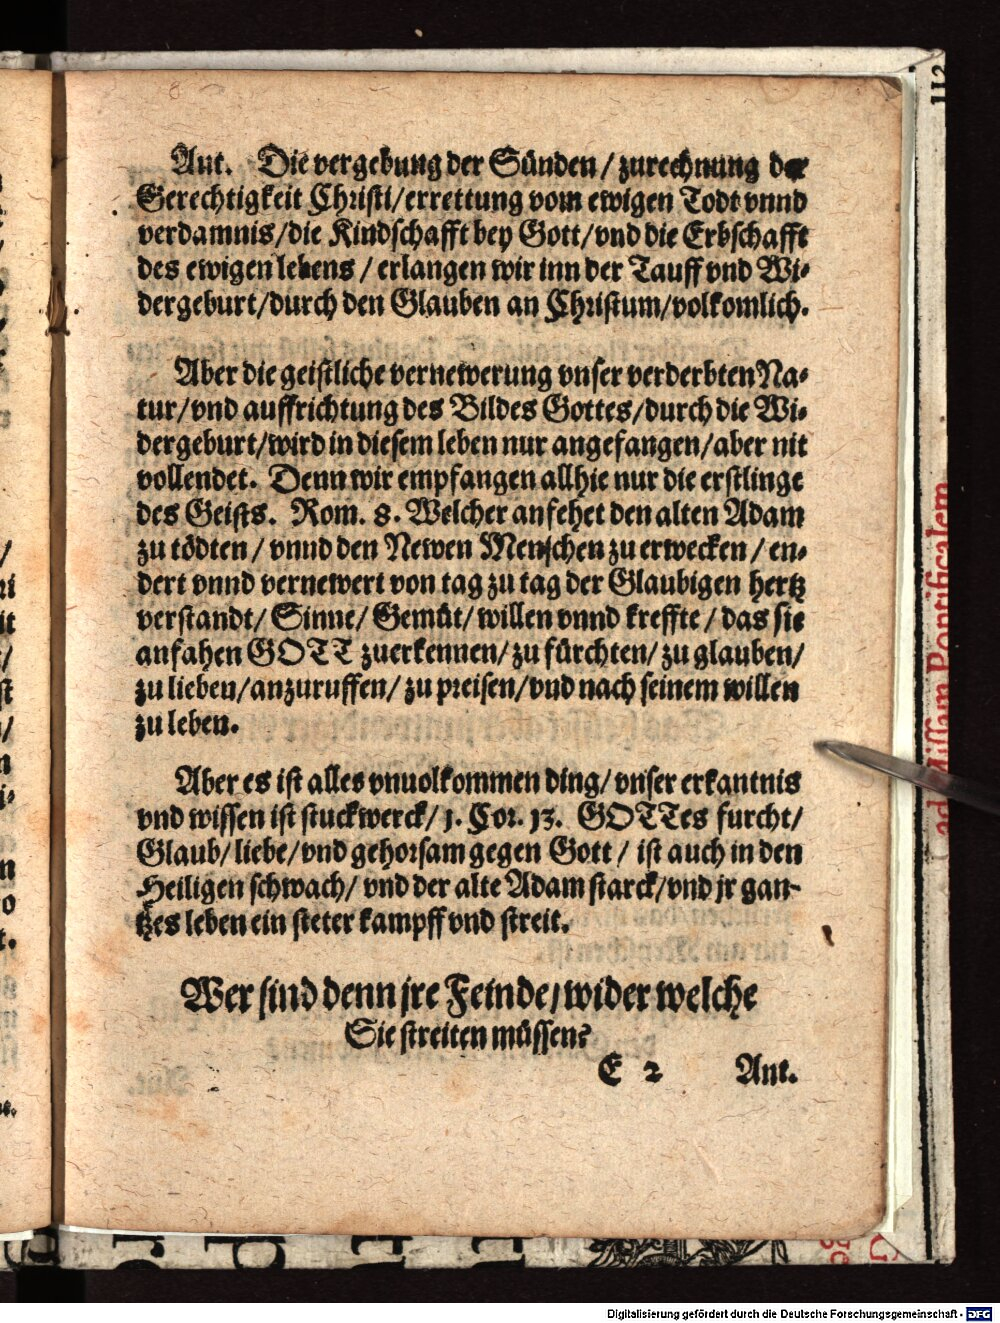 Ant. Die vergebung der Sünden / zurechnung der
Gerechtigkeit Christi/errettung vom ewigen Todt vnnd
verdamnis/die Kindschafft bey Gott/vnd die Erbschafft
des ewigen lebens / erlangen wir inn der Tauff vnd Wi-
dergeburt/durch den Glauben an Christum/volkomlich.
Aber die geistliche vernewerung vnser verderbten Na-
tur/vnd auffrichtung des Bildes Gottes/durch die Wi-
dergeburt/wird in diesem leben nur angefangen/aber nit
vollendet. Denn wir empfangen allhie nur die erstlinge
des Geists. Rom. 8. Welcher anfehet den alten Adam
zu tödten / vnnd den Newen Menschen zu erwecken / en-
dert vnnd vernewert von tag zu tag der Glaubigen hertz
verstandt/ Sinne/ Gemüt/ willen vnnd kreffte / das sie
anfahen GOTT zuerkennen/ zu fürchten/ zu glauben/
zu lieben/anzuruffen/ zu preisen/vnd nach seinem willen
zu leben.
Aber es ist alles vnuolkommen ding/ vnser erkantnis
vnd wissen ist stuckwerck/ 1. Cor. 13. GOTTes furcht/
Glaub/ liebe/vnd gehorsam gegen Gott / ist auch in den
Heiligen schwach/ vnd der alte Adam starck/vnd jr gan-
tzes leben ein steter kampff vnd streit.
Wer sind denn jre Feinde/ wider welche
Sie streiten müssen?
E 2 Ant.
112
ad Missam Pontificalem
Digitalisierung gefördert durch die Deutsche Forschungsgemeinschaft - DFG